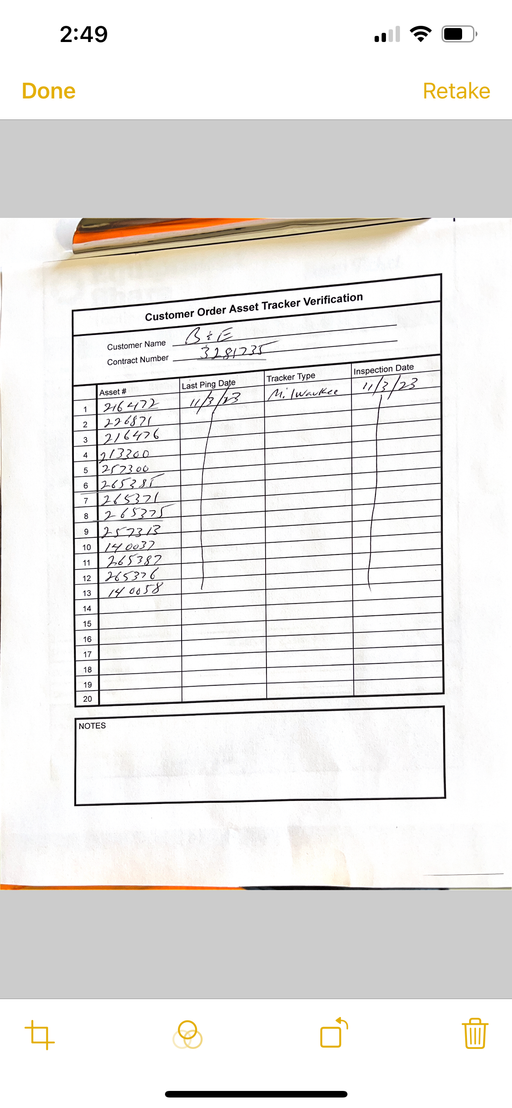 2:49
Done Retake
Customer Order Asset Tracker Verification
Customer Name B & E
Contract Number 3281735
Asset # Last Ping Date Tracker Type Inspection Date
1 216472 11/3/23 Milwaukee 11/3/23
2 226871
3 216476
4 213200
5 257300
6 265385
7 265371
8 265375
9 257313
10 140037
11 265387
12 265376
13 140058
14
15
16
17
18
19
20
NOTES